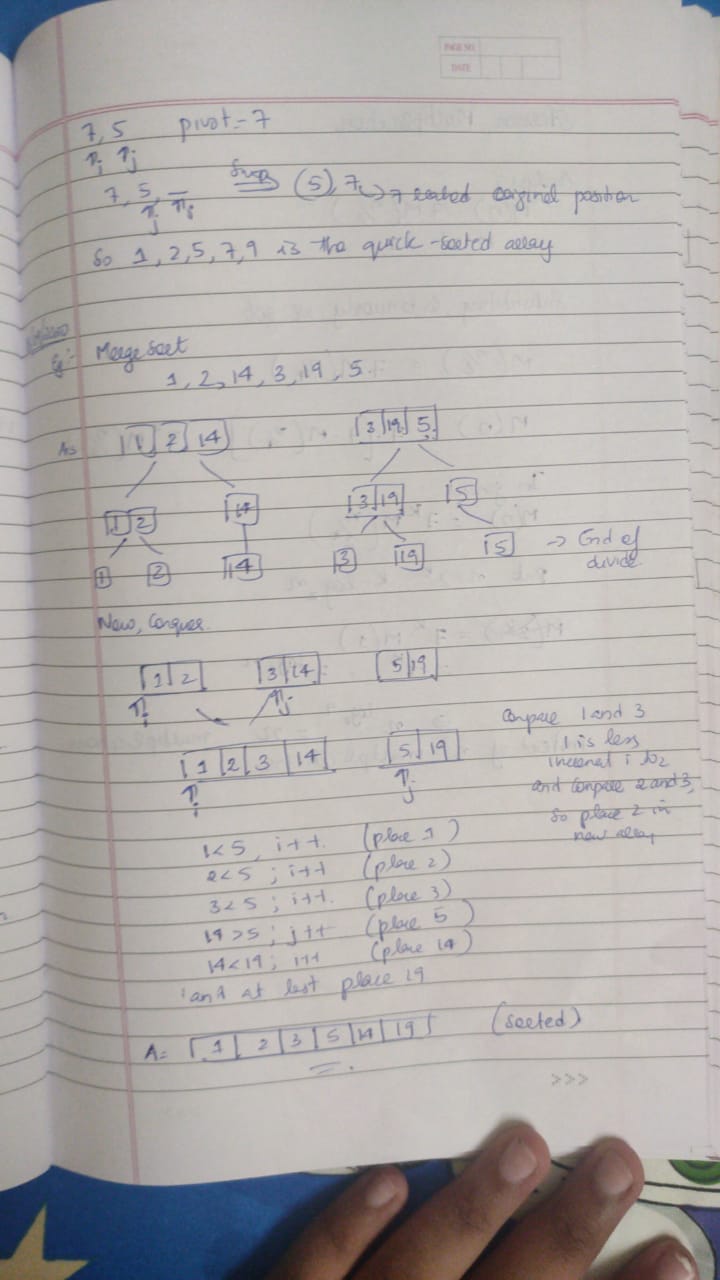 PAGE NO.
DATE
7, 5 pivot = 7
↑i ↑j
7, 5, _ Swap (5), 7 → 7 reached original position
↑j ↑i
So 1, 2, 5, 7, 9 is the quick-sorted array
Eg:- Merge Sort
1, 2, 14, 3, 19, 5
A= 1 2 14 3 19 5
1 2 14 3 19 5
1 2 14 3 19 5 → End of divide
Now, Conquer.
1 2 3 14 5 19
↑i ↑j
1 2 3 14 5 19
↑i ↑j
Compare 1 and 3
1 is less
and compare 2 and 3,
so place 2 in
new array
1<5, i++. (place 1)
2<5; i++ (place 2)
3<5; i++. (place 3)
14>5; j++ (place 5)
14<19; i++ (place 14)
and at last place 19
A= 1 2 3 5 14 19 (sorted)
>>>